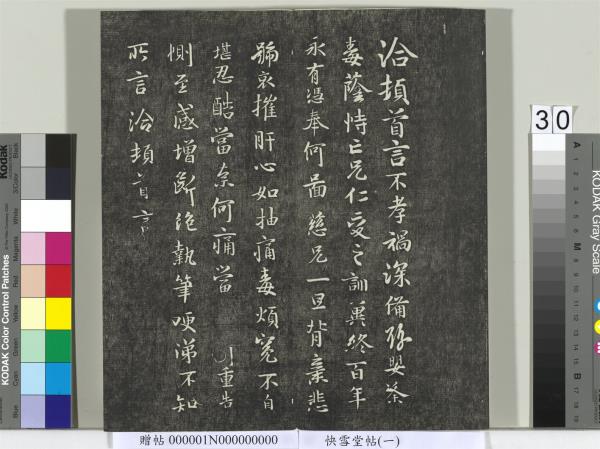 洽頓首言不孝禍深備豫嬰荼
毒蔭恃亡兄仁愛之訓冀終百年
永有憑奉何圖慈兄一旦背棄悲
號哀摧肝心如抽痛毒煩冤不自
堪忍酷當奈何痛當重告
惻至感增斷絕執筆哽涕不知
所言洽頓首言
贈帖 000001N000000000 快雪堂帖(一)
30
KODAK Color Control Patches
Kodak
Blue Cyan Green Yellow Red Magenta White 3/Color Black
KODAK Gray Scale
A 1 2 3 4 5 6 M 8 9 10 11 12 13 14 15 B 17 18 19